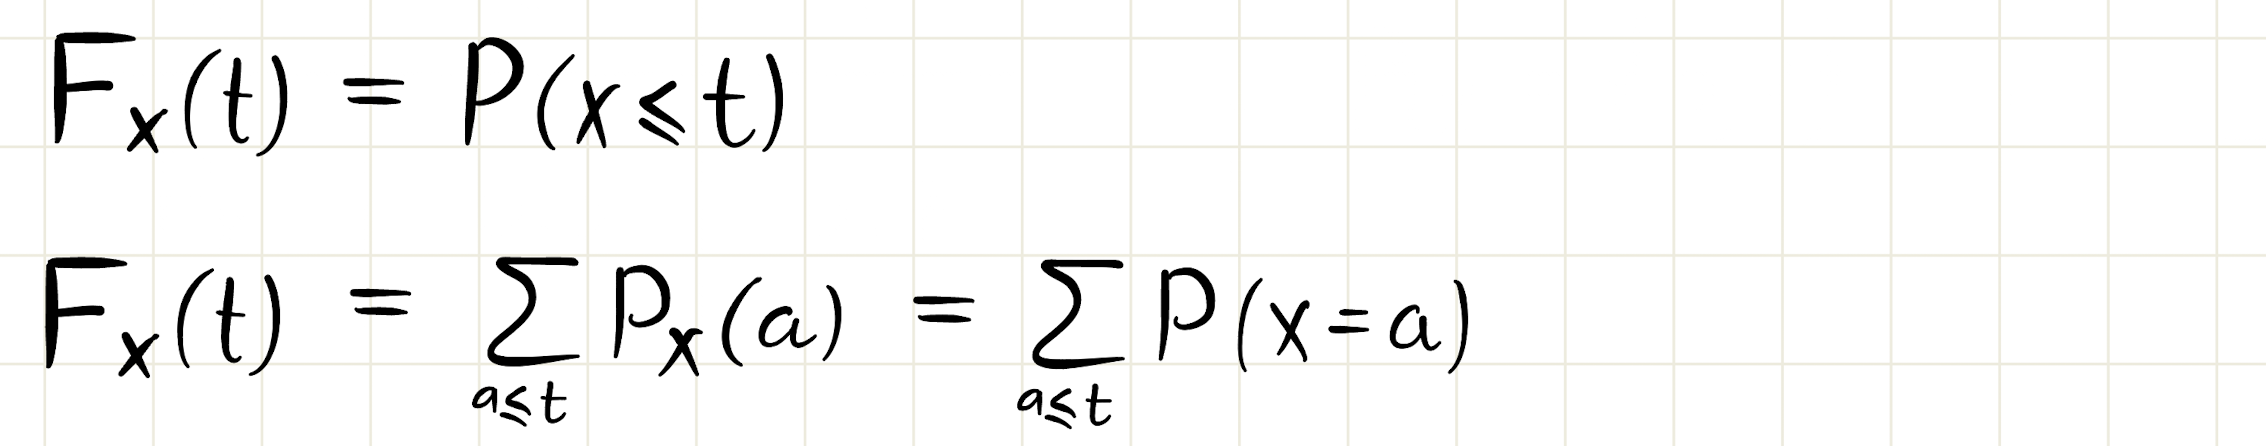 Fₓ(t) = P(x ⩽ t)
Fₓ(t) = ∑_{a⩽t} Pₓ(a) = ∑_{a⩽t} P(x = a)